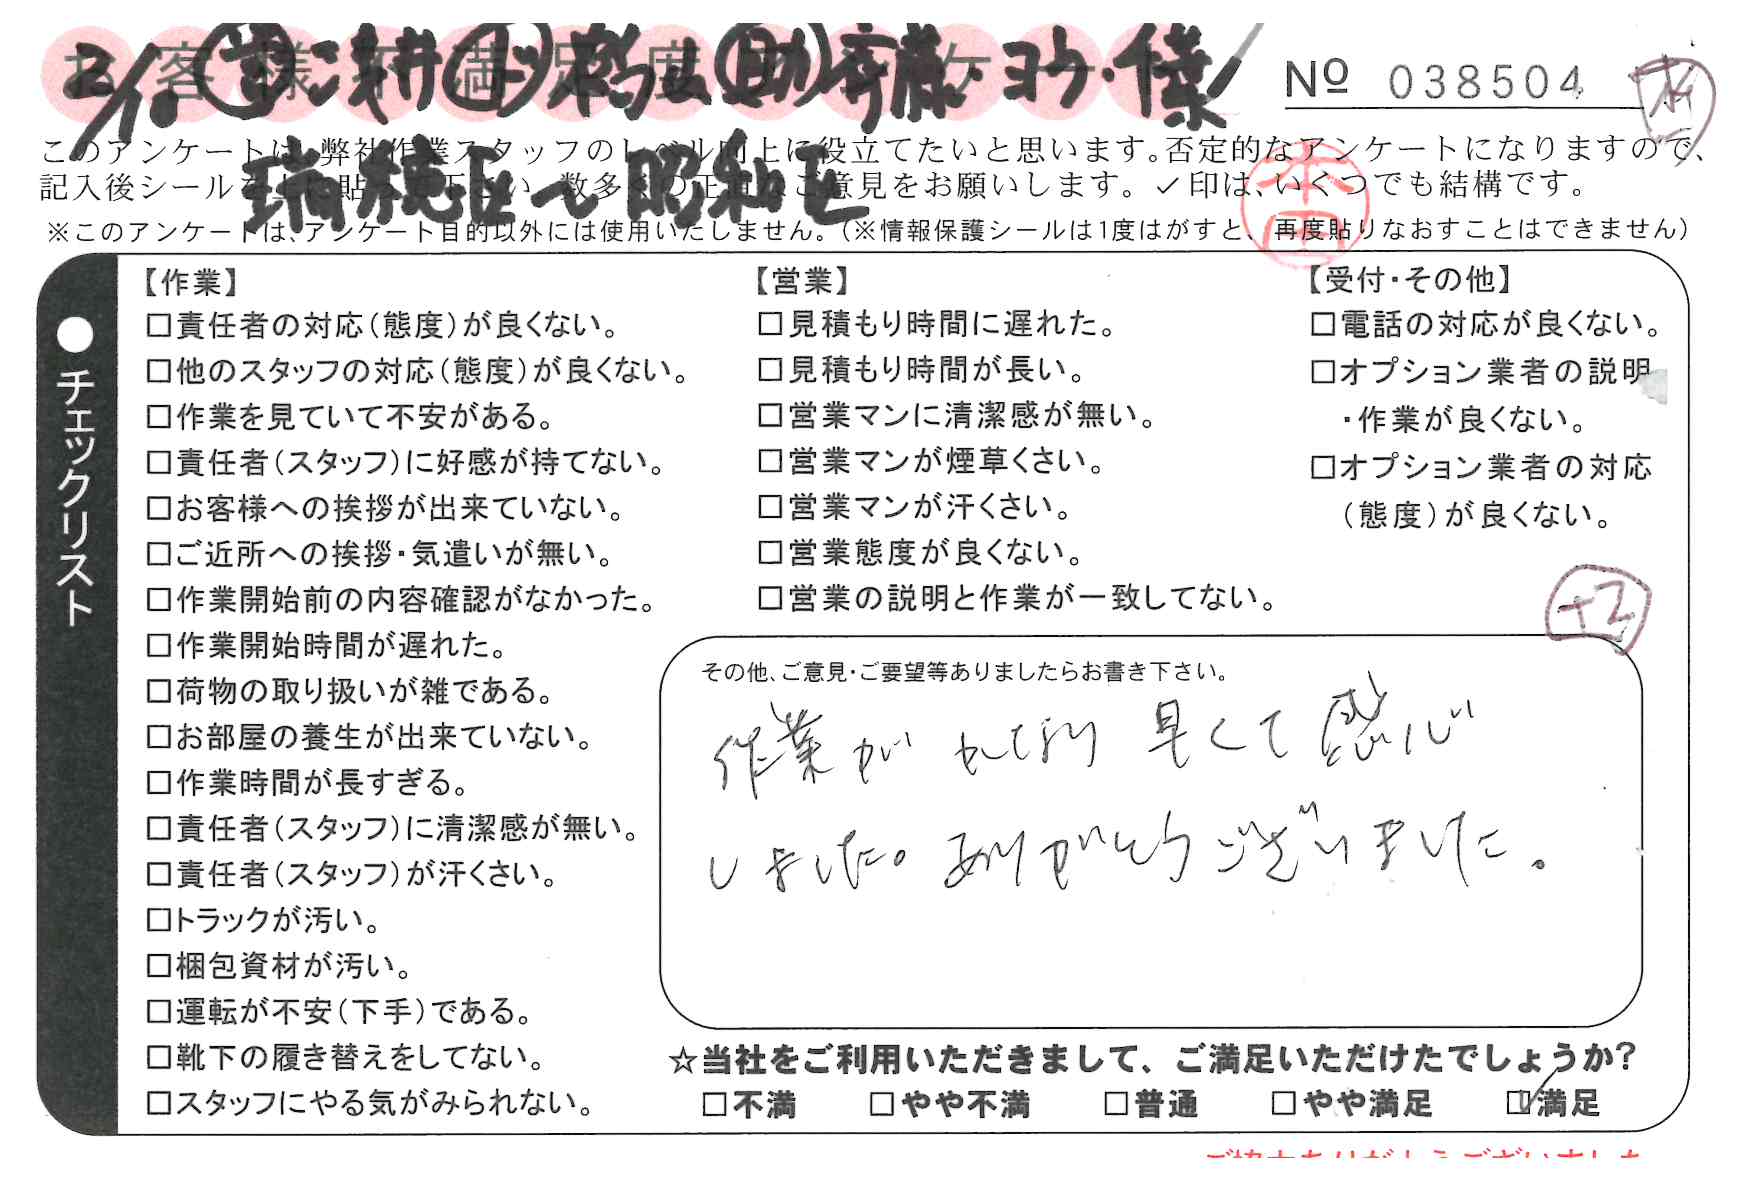 お客様不満足度アンケート
2/10
No 038504
このアンケートは、弊社作業スタッフのレベル向上に役立てたいと思います。否定的なアンケートになりますので、
記入後シールを上に貼って下さい。数多くの正直なご意見をお願いします。✓印は、いくつでも結構です。
瑞穂区〜昭和区
本田
※このアンケートは、アンケート目的以外には使用いたしません。(※情報保護シールは1度はがすと、再度貼りなおすことはできません)
●チェックリスト
【作業】
□責任者の対応(態度)が良くない。
□他のスタッフの対応(態度)が良くない。
□作業を見ていて不安がある。
□責任者(スタッフ)に好感が持てない。
□お客様への挨拶が出来ていない。
□ご近所への挨拶・気遣いが無い。
□作業開始前の内容確認がなかった。
□作業開始時間が遅れた。
□荷物の取り扱いが雑である。
□お部屋の養生が出来ていない。
□作業時間が長すぎる。
□責任者(スタッフ)に清潔感が無い。
□責任者(スタッフ)が汗くさい。
□トラックが汚い。
□梱包資材が汚い。
□運転が不安(下手)である。
□靴下の履き替えをしてない。
□スタッフにやる気がみられない。
【営業】
□見積もり時間に遅れた。
□見積もり時間が長い。
□営業マンに清潔感が無い。
□営業マンが煙草くさい。
□営業マンが汗くさい。
□営業態度が良くない。
□営業の説明と作業が一致してない。
【受付・その他】
□電話の対応が良くない。
□オプション業者の説明
・作業が良くない。
□オプション業者の対応
(態度)が良くない。
+2
その他、ご意見・ご要望等ありましたらお書き下さい。
作業がかなり早くて感心
しました。ありがとうございました。
☆当社をご利用いただきまして、ご満足いただけたでしょうか?
□不満 □やや不満 □普通 □やや満足 ☑満足
ご協力ありがとうございました